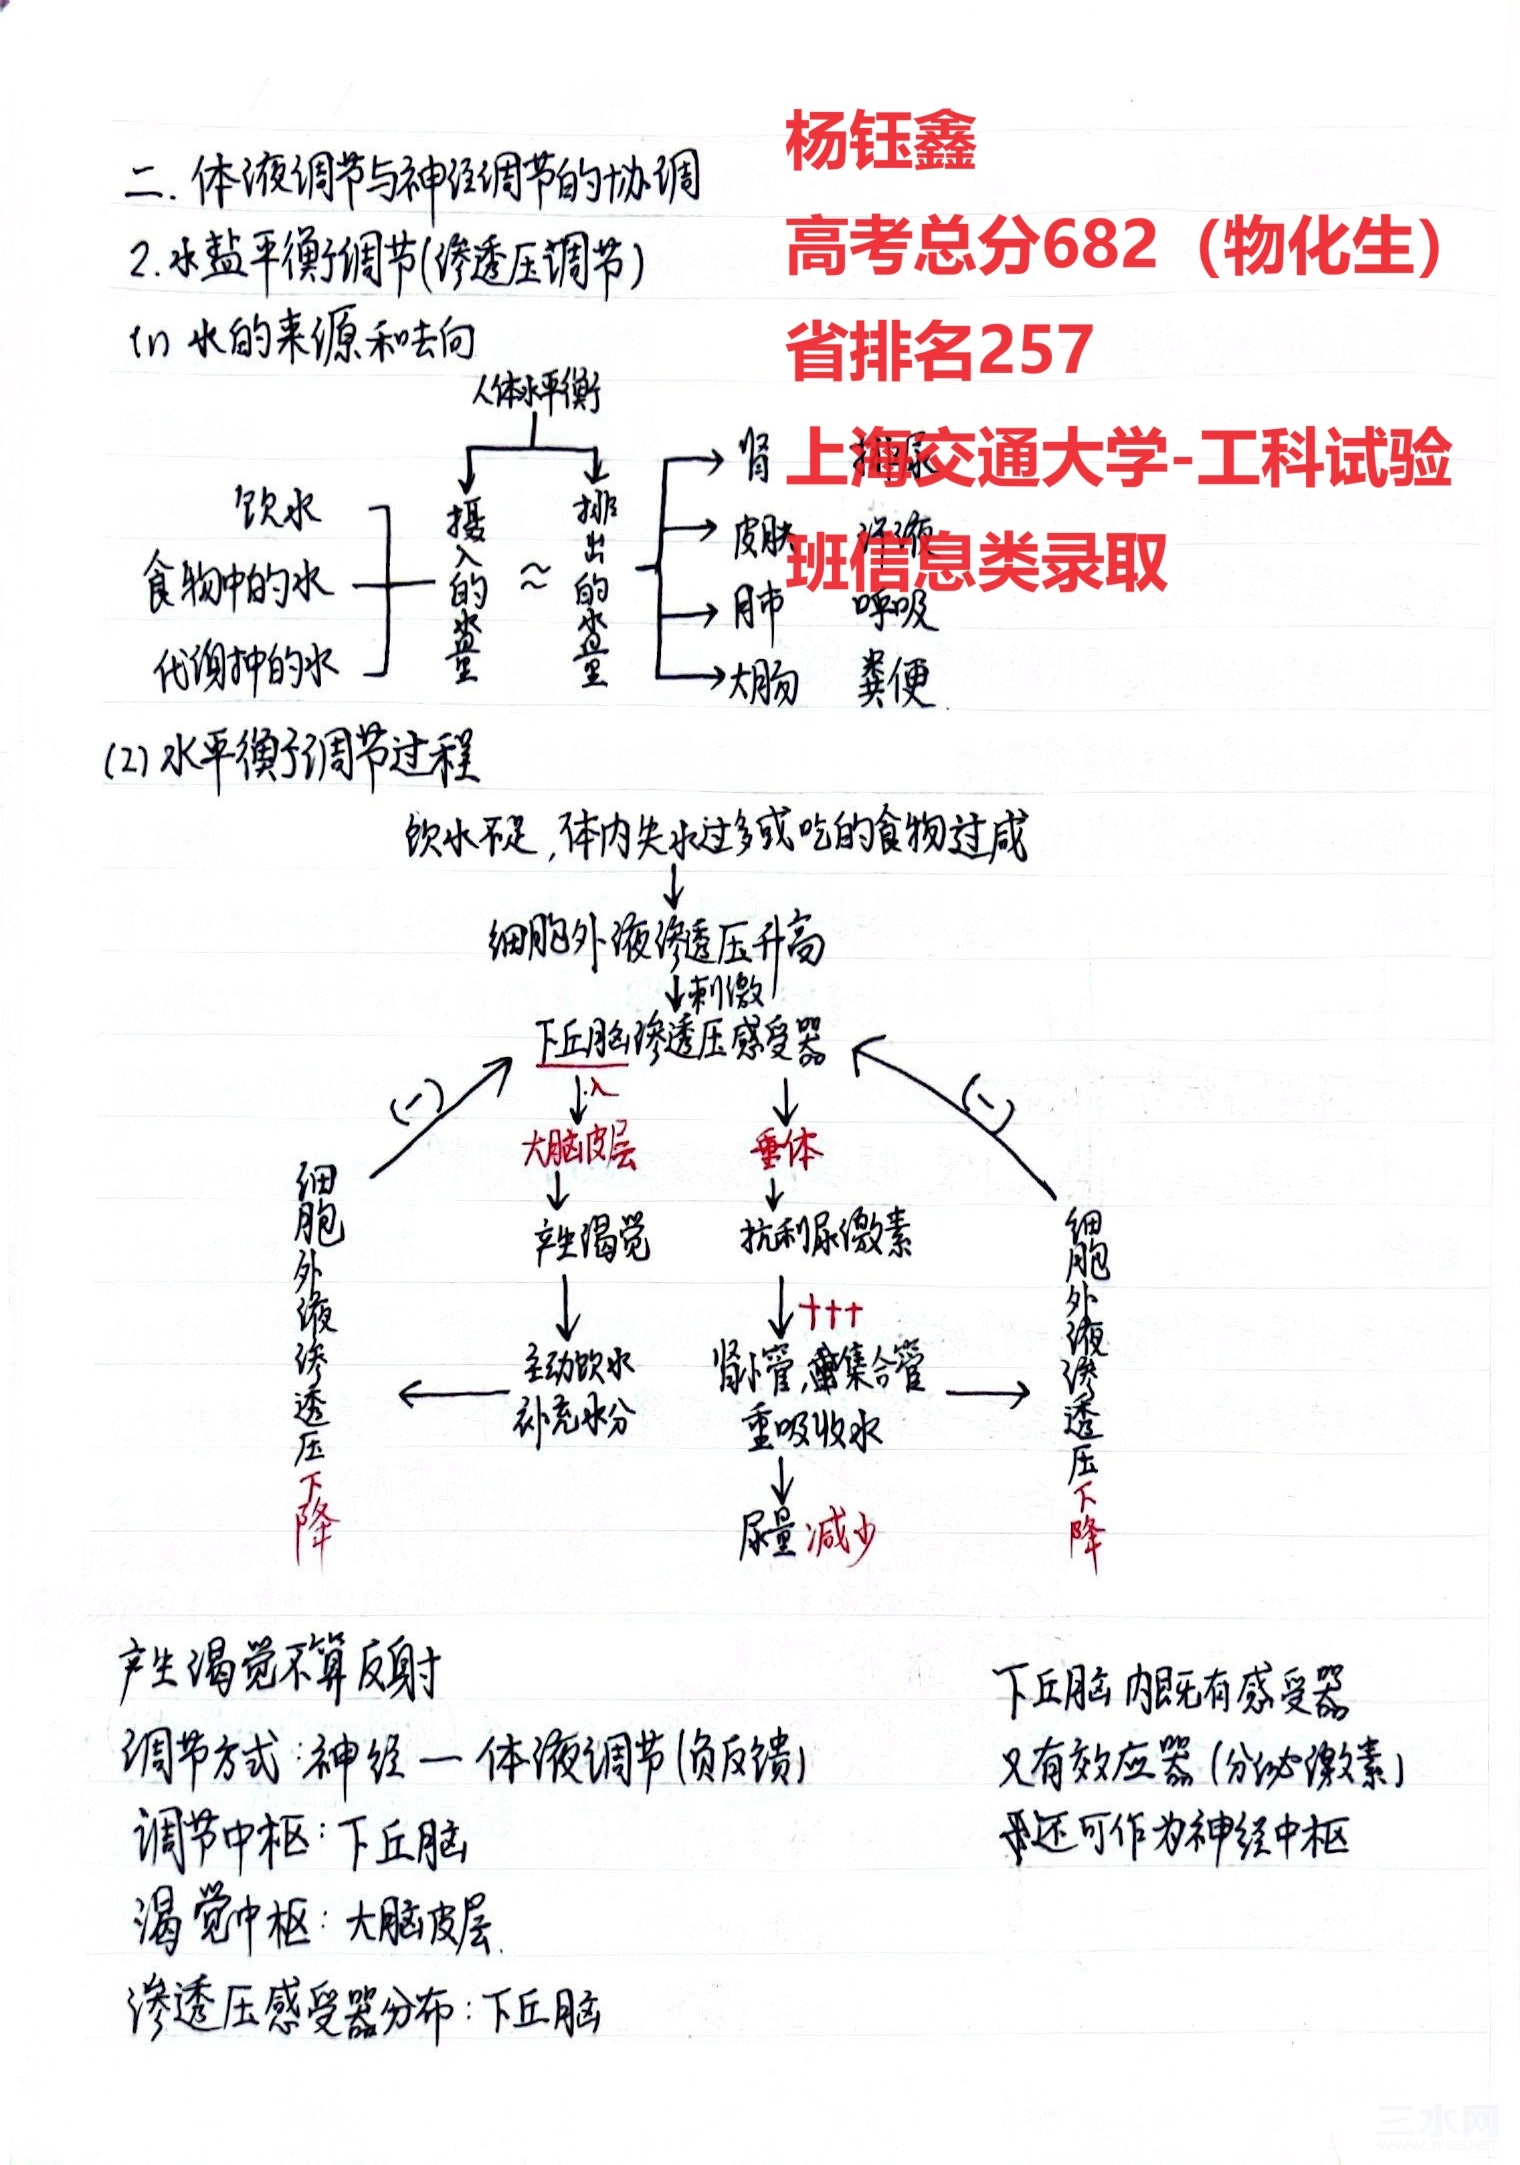 杨钰鑫
高考总分682（物化生）
省排名257
上海交通大学-工科试验
班信息类录取
二. 体液调节与神经调节的协调
2.水盐平衡调节(渗透压调节)
(1) 水的来源和去向
人体水平衡
饮水
食物中的水
代谢中的水
摄入的水量
≈
排出的水量
肾 排尿
皮肤 汗液
肺 呼吸
大肠 粪便
(2) 水平衡调节过程
饮水不足,体内失水过多或吃的食物过咸
细胞外液渗透压升高
刺激
下丘脑渗透压感受器
(一)
(一)
大脑皮层
垂体
产生渴觉
抗利尿激素
+++
主动饮水
补充水分
肾小管,集合管
重吸收水
尿量减少
细胞外液渗透压下降
细胞外液渗透压下降
产生渴觉不算反射
调节方式:神经一体液调节(负反馈)
调节中枢:下丘脑
渴觉中枢:大脑皮层.
渗透压感受器分布:下丘脑
下丘脑内既有感受器
又有效应器(分泌激素)
还可作为神经中枢
三水网
WWW.JYSS.NET